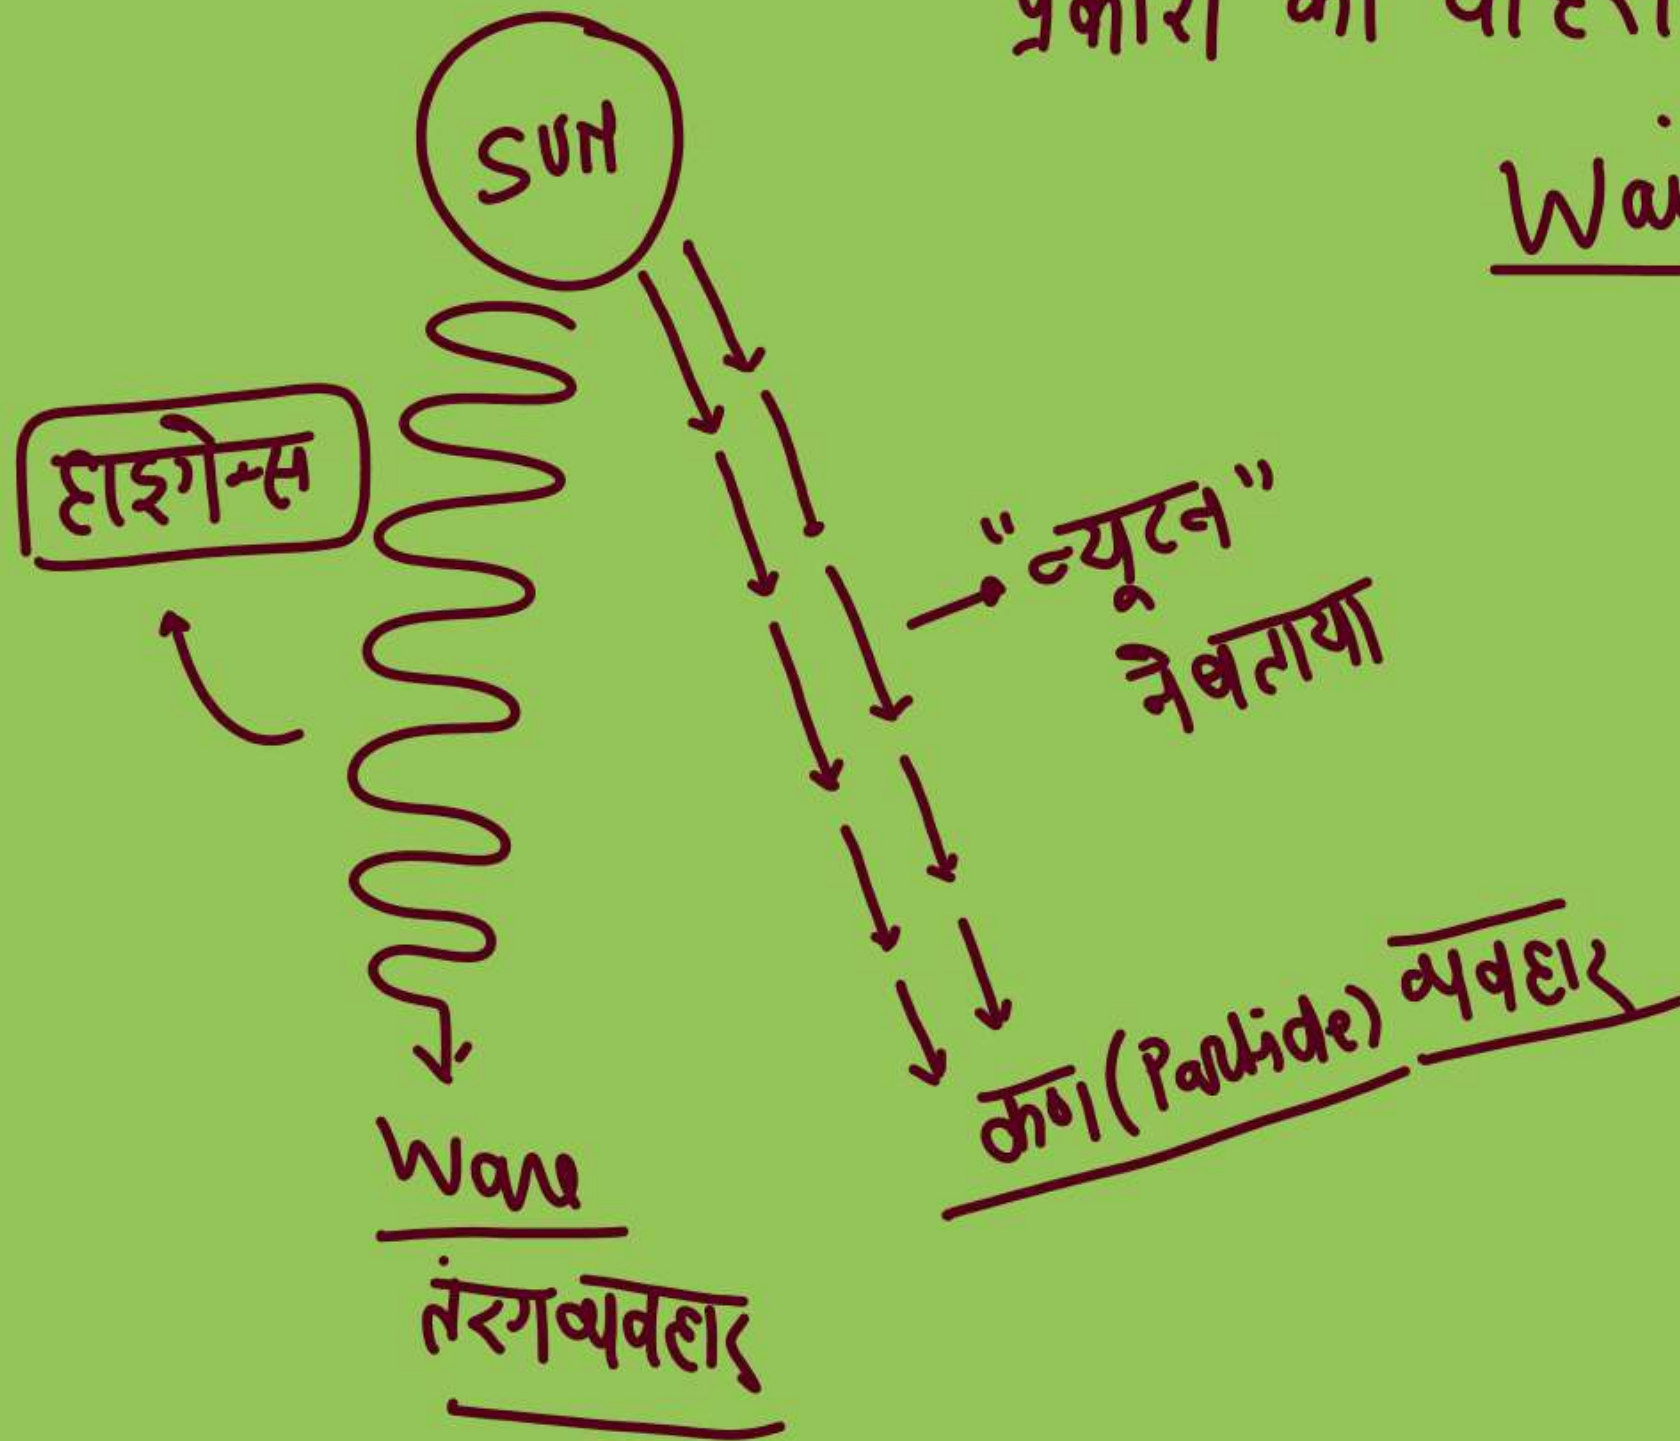 प्रकाश का
SUN
हाइगेन्स
"न्यूटन"
ने बताया
कण (Particle) व्यवहार
Wave
तंरग व्यवहार